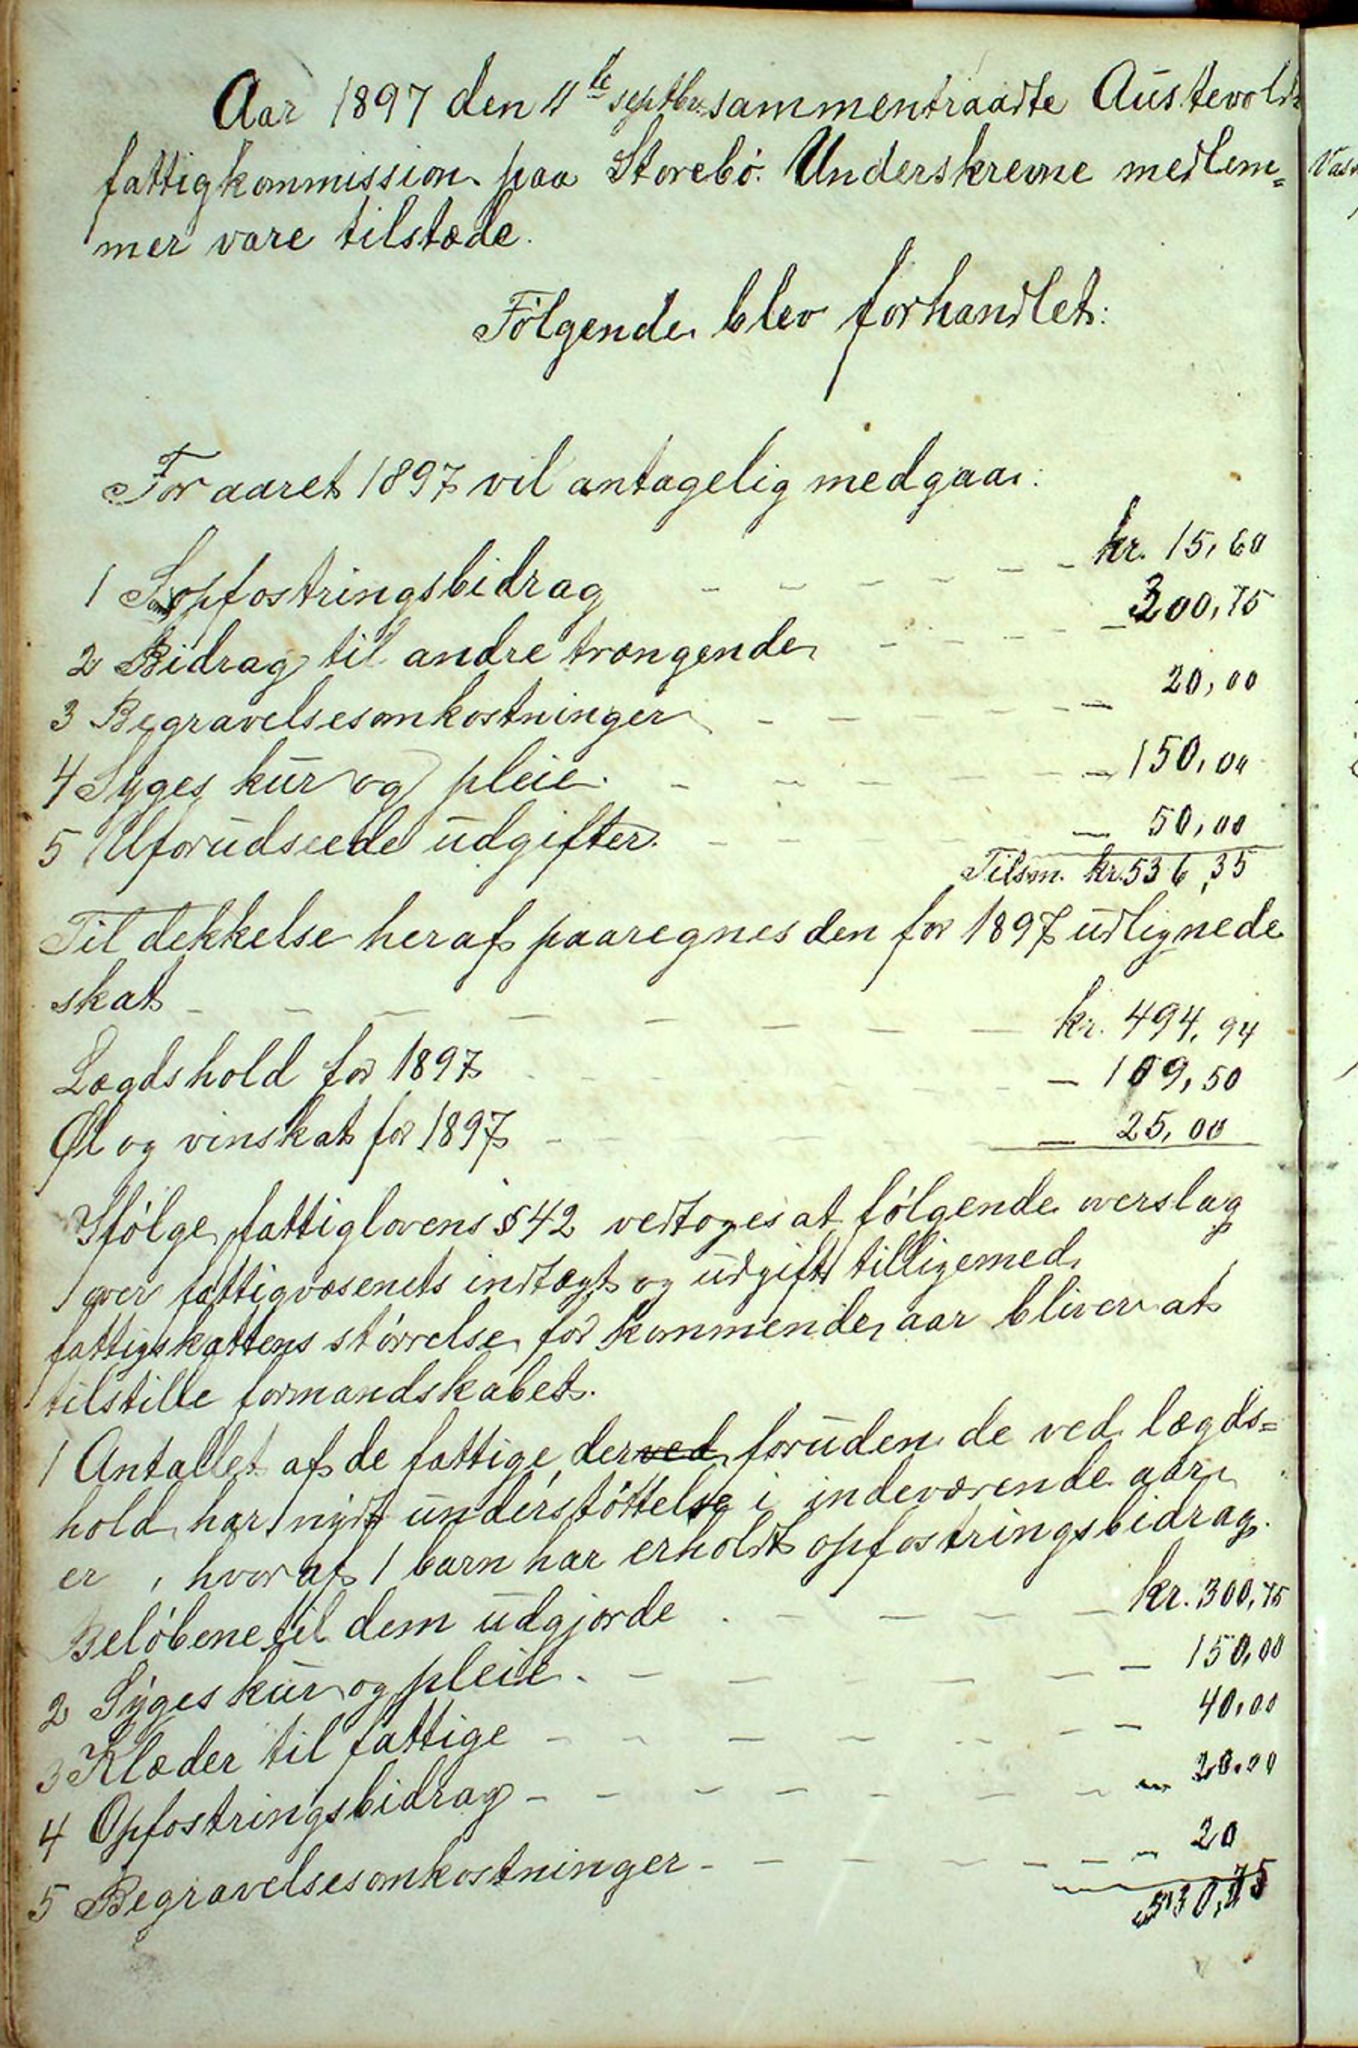 Aar 1897 den 4de septbr. sammentraadte Austevolds
fattigkommission paa Storebö. Underskrevne medlem=
mer vare tilstæde.
Fölgende blev forhandlet:
For aaret 1897 vil antagelig medgaa:
1 opfostringsbidrag - - - - - - kr. 15,60
2 Bidrag til andre trængende - - - - 300,75
3 Begravelsesomkostninger - - - - - 20,00
4 Syges kur og pleie. - - - - - 150,00
5 Uforudseede udgifter. - - - - 50,00
Tilsm. kr. 536,35
Til dekkelse heraf paaregnes den for 1897 udlignede
skat - - - - - - - - kr. 494,94
Lægdshold for 1897 - - - - - 109,50
Øl og vinskat for 1897 - - - - - 25,00
Ifölge fattiglovens § 42 vedtoges at fölgende overslag
over fattigvæsenets indtægt og udgift tilligemed
fattigskattens störrelse for kommende aar bliver at
tilstille formandskabet.
1 Antallet af de fattige, derved foruden de ved lægds=
hold har nydt understöttelse i indeværende aar
er , hvoraf 1 barn har erholdt opfostringsbidrag.
Belöbene til dem udgjorde - - - - kr. 300,75
2 Syges kur og pleie. - - - - - - 150,00
3 Klæder til fattige - - - - - - - 40,00
4 Opfostringsbidrag - - - - - - - 20,00
5 Begravelsesomkostninger - - - - - - 20
530,75